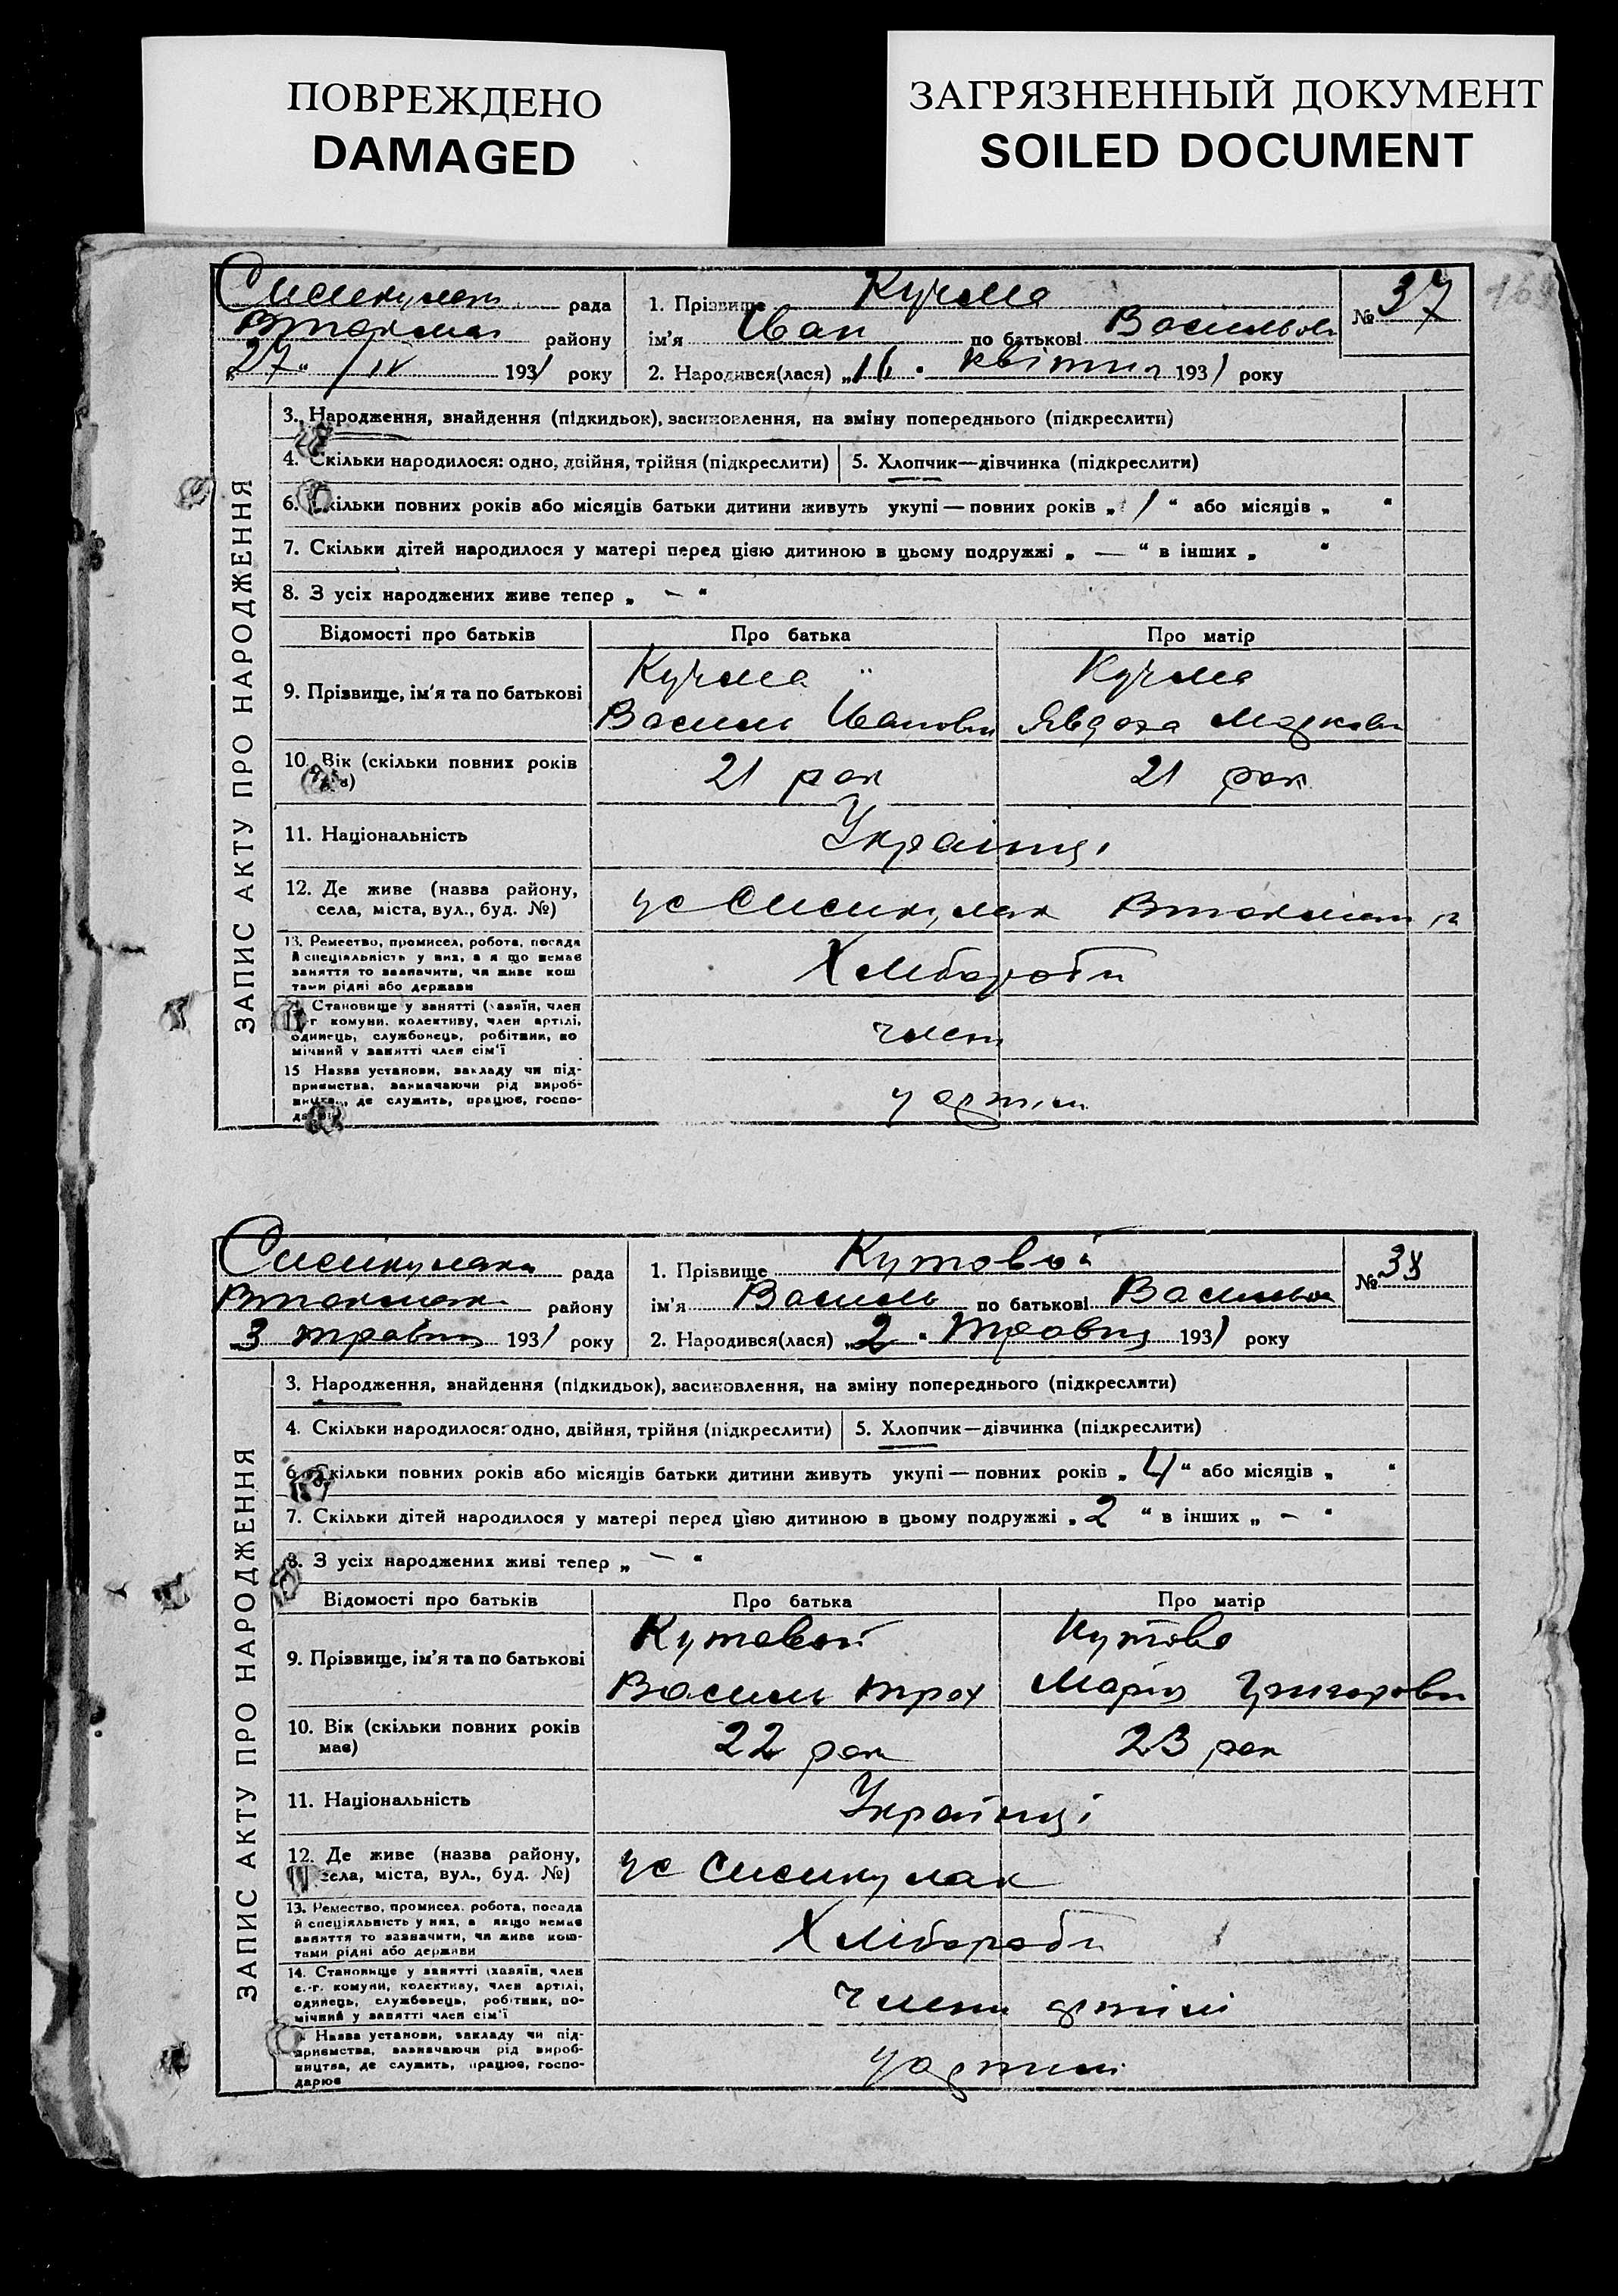 ПОВРЕЖДЕНО
DAMAGED
ЗАГРЯЗНЕННЫЙ ДОКУМЕНТ
SOILED DOCUMENT
ЗАПИС АКТУ ПРО НАРОДЖЕННЯ
рада
району
"27" / IV 1931 року
1. Прізвище Кучма
ім'я Іван по батькові
2. Народився(лася) " 1931 року
№ 37
3. Народження, знайдення (підкидьок), засиновлення, на зміну попереднього (підкреслити)
4. Скільки народилося: одно, двійня, трійня (підкреслити) 5. Хлопчик—дівчинка (підкреслити)
6. Скільки повних років або місяців батьки дитини живуть укупі — повних років „ 1 " або місяців „ "
7. Скільки дітей народилося у матері перед цією дитиною в цьому подружжі „ — " в інших „ "
8. З усіх народжених живе тепер „ — "
Відомості про батьків Про батька Про матір
9. Прізвище, ім'я та по батькові Кучма Кучма
Василь Явдоха
10. Вік (скільки повних років має) 21 рок 21 рок
11. Національність Українці
12. Де живе (назва району,
села, міста, вул., буд. №)
13. Ремество, промисел, робота, посада
й спеціальність у них, а я що немає
заняття то зазначити, чи живе кош
тами рідні або держави
Хлібороби
14. Становище у занятті (хазяїн, член
с.-г. комуни, колективу, член артілі,
одинець, службовець, робітник, по
мічний у занятті член сім'ї
член
15 Назва установи, закладу чи під-
приємства, зазначаючи рід вироб-
ництва, де служить, працює, госпо-
дарює
у артіли
ЗАПИС АКТУ ПРО НАРОДЖЕННЯ
рада
району
3 травня 1931 року
1. Прізвище Кутовой
ім'я Василь по батькові
2. Народився(лася) „2" травня 1931 року
№ 38
3. Народження, знайдення (підкидьок), засиновлення, на зміну попереднього (підкреслити)
4. Скільки народилося: одно, двійня, трійня (підкреслити) 5. Хлопчик—дівчинка (підкреслити)
6. Скільки повних років або місяців батьки дитини живуть укупі — повних років „ 4 " або місяців „ "
7. Скільки дітей народилося у матері перед цією дитиною в цьому подружжі „ 2 " в інших „ — "
8. З усіх народжених живі тепер „ — "
Відомості про батьків Про батька Про матір
9. Прізвище, ім'я та по батькові Кутовой Кутова
Василь Трох Марія Григоровн
10. Вік (скільки повних років
має)
22 рок 23 рок
11. Національність Українці
12. Де живе (назва району,
села, міста, вул., буд. №)
13. Ремество, промисел, робота, посада
й спеціяльність у них, а якщо немає
заняття то зазначити, чи живе кош-
тами рідні або держави
Хлібороби
14. Становище у занятті (хазяїн, член
с.-г. комуни, колективу, член артілі,
одинець, службовець, робітник, по-
мічний у занятті член сім'ї
члени артілі
Назва установи, закладу чи під-
приємства, зазначаючи рід вироб-
ництва, де служить, працює, госпо-
дарює
у артілі